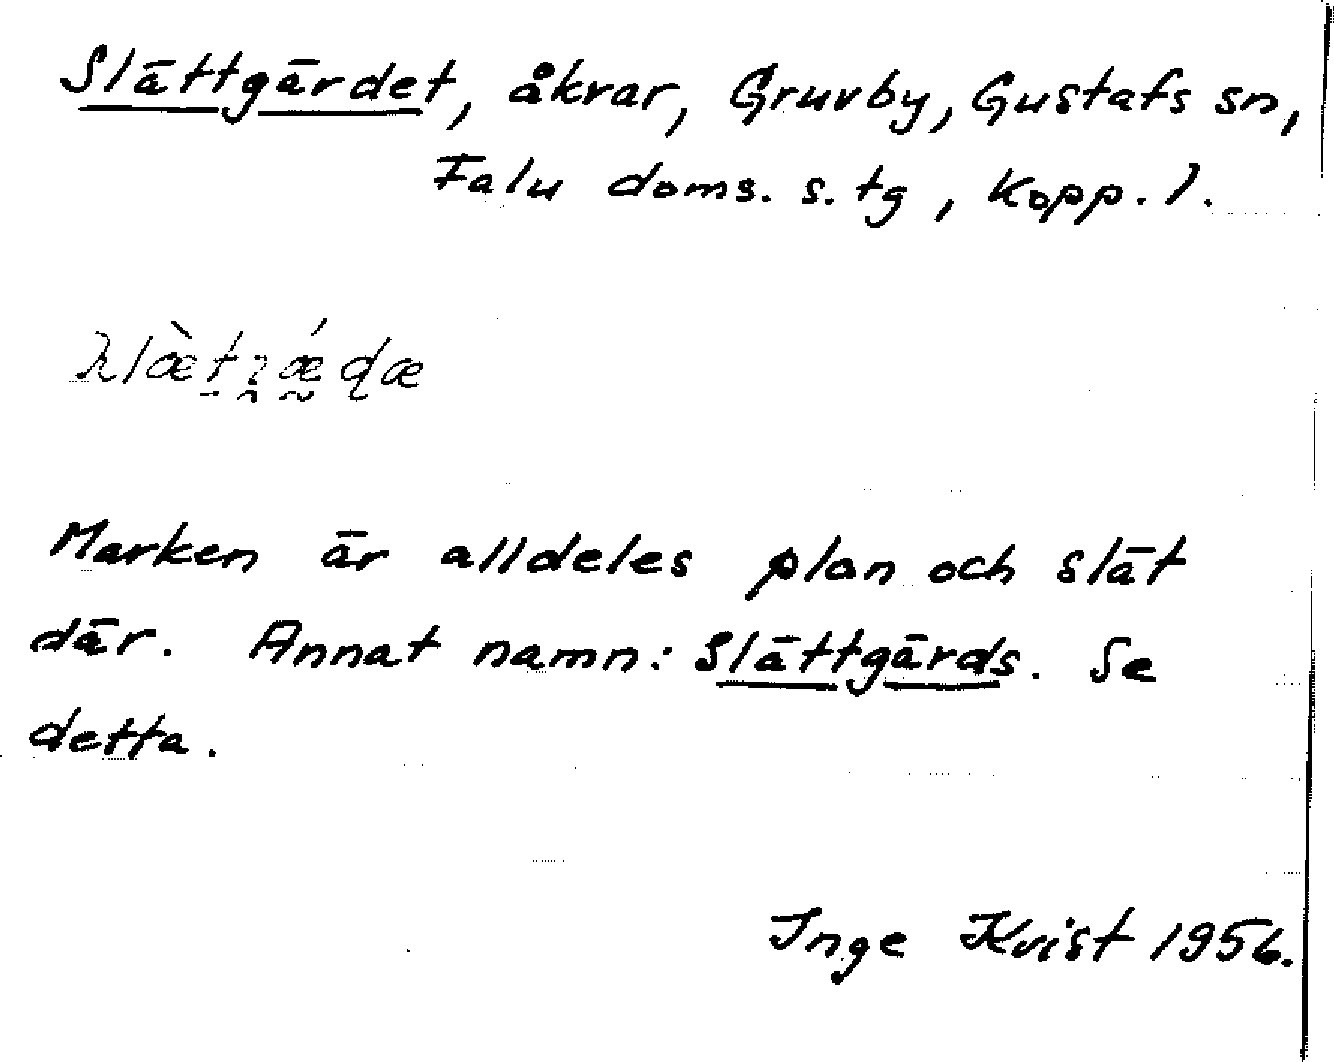 Slättgärdet, åkrar, Gruvby, Gustafs sn,
Falu doms. s. tg, Kopp. l.
Marken är alldeles plan och slät
där. Annat namn: Slättgärds. Se
detta.
Inge Kvist 1956.